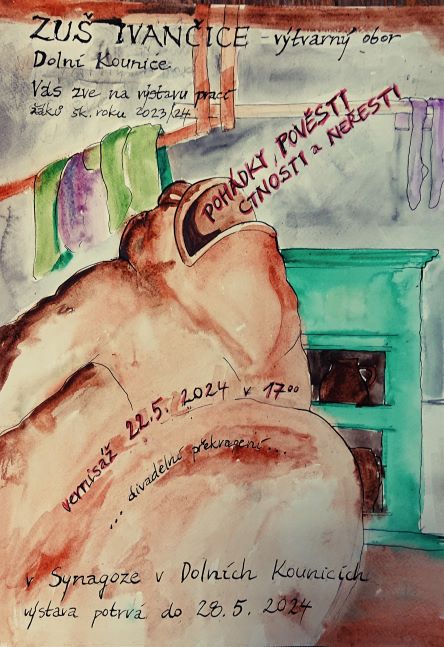 ZUŠ IVANČICE - výtvarný obor
Dolní Kounice
Vás zve na výstavu prací
žáků šk. roku 2023/24
POHÁDKY, POVĚSTI
CTNOSTI a NEŘESTI
vernisáž 22.5. 2024 v 17⁰⁰
... divadelní překvapení ...
v Synagoze v Dolních Kounicích
výstava potrvá do 28.5. 2024